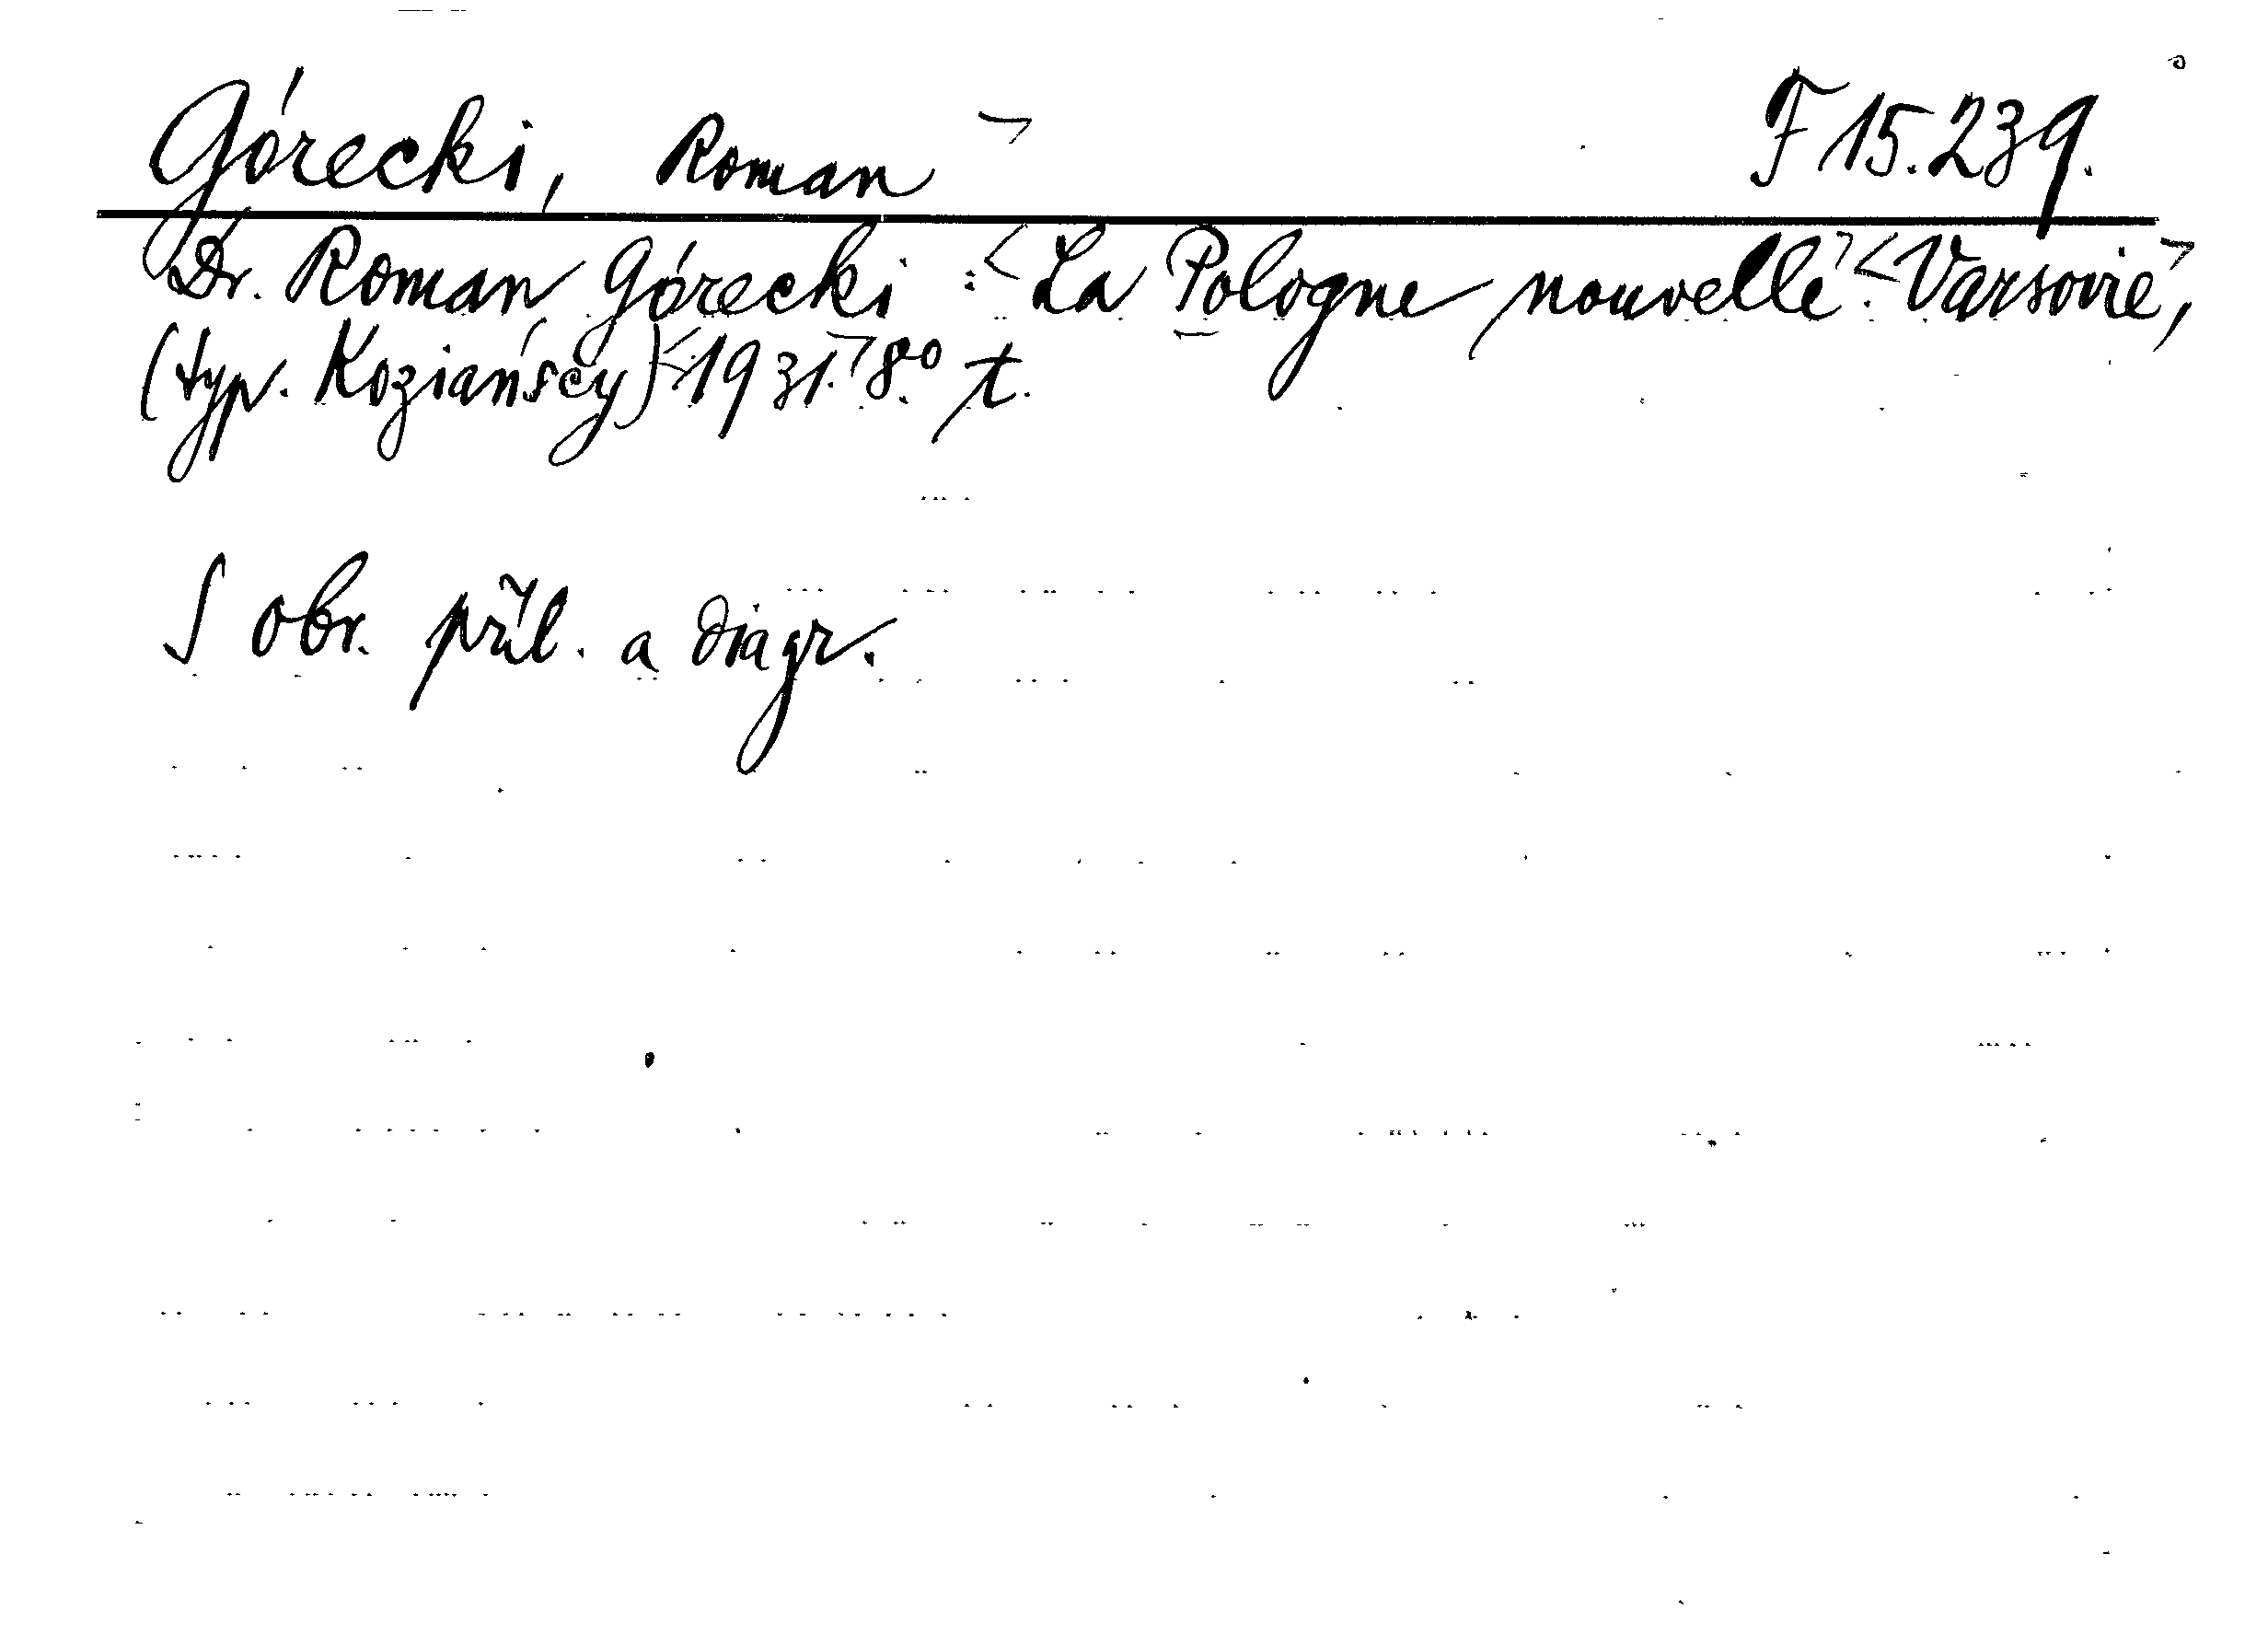 Górecki, Roman F 15.239.
Dr. Roman Górecki: La Pologne nouvelle. Varsovie,
(typ. Koziańscy) 1931. 8° t.
S obr. příl. a diagr.